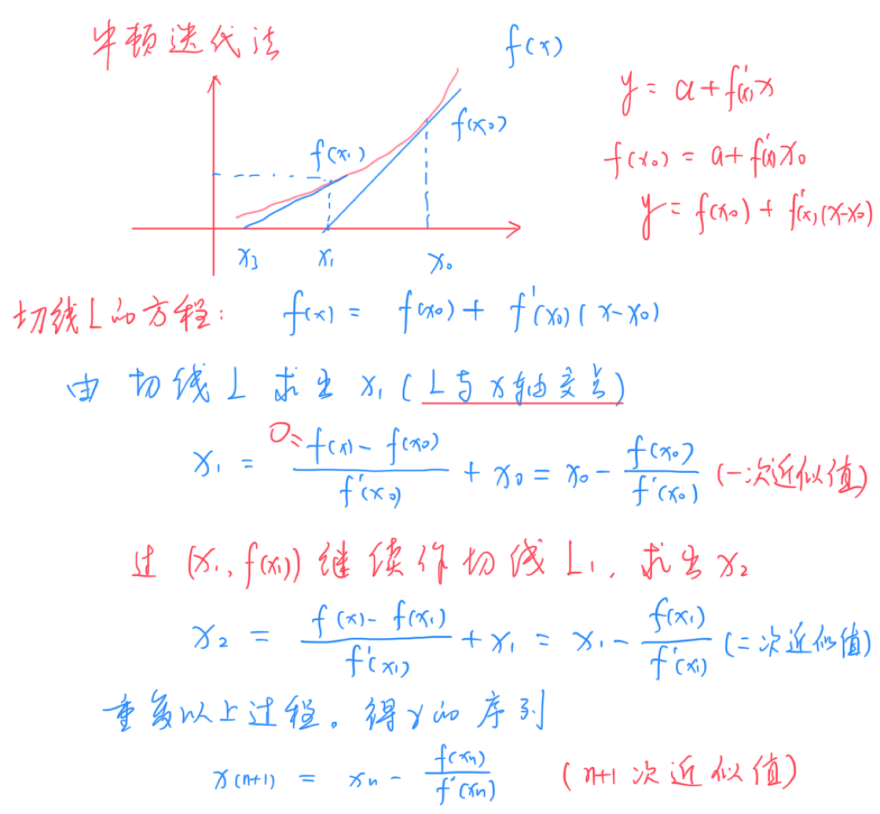 牛顿迭代法
f(x)
y = a + f'(x)x
f(x₀)
f(x₁)
f(x₀) = a + f'(x)x₀
y = f(x₀) + f'(x)(x-x₀)
x₃ x₁ x₀
切线L的方程: f(x) = f(x₀) + f'(x₀)(x-x₀)
由切线L求出x₁(L与x轴交点)
x₁ = 0= (f(x) - f(x₀))/f'(x₀) + x₀ = x₀ - f(x₀)/f'(x₀) (一次近似值)
过(x₁, f(x₁))继续作切线L₁, 求出x₂
x₂ = (f(x) - f(x₁))/f'(x₁) + x₁ = x₁ - f(x₁)/f'(x₁) (二次近似值)
重复以上过程。得γ的序列
x(n+1) = xn - f(xn)/f'(xn) (n+1次近似值)